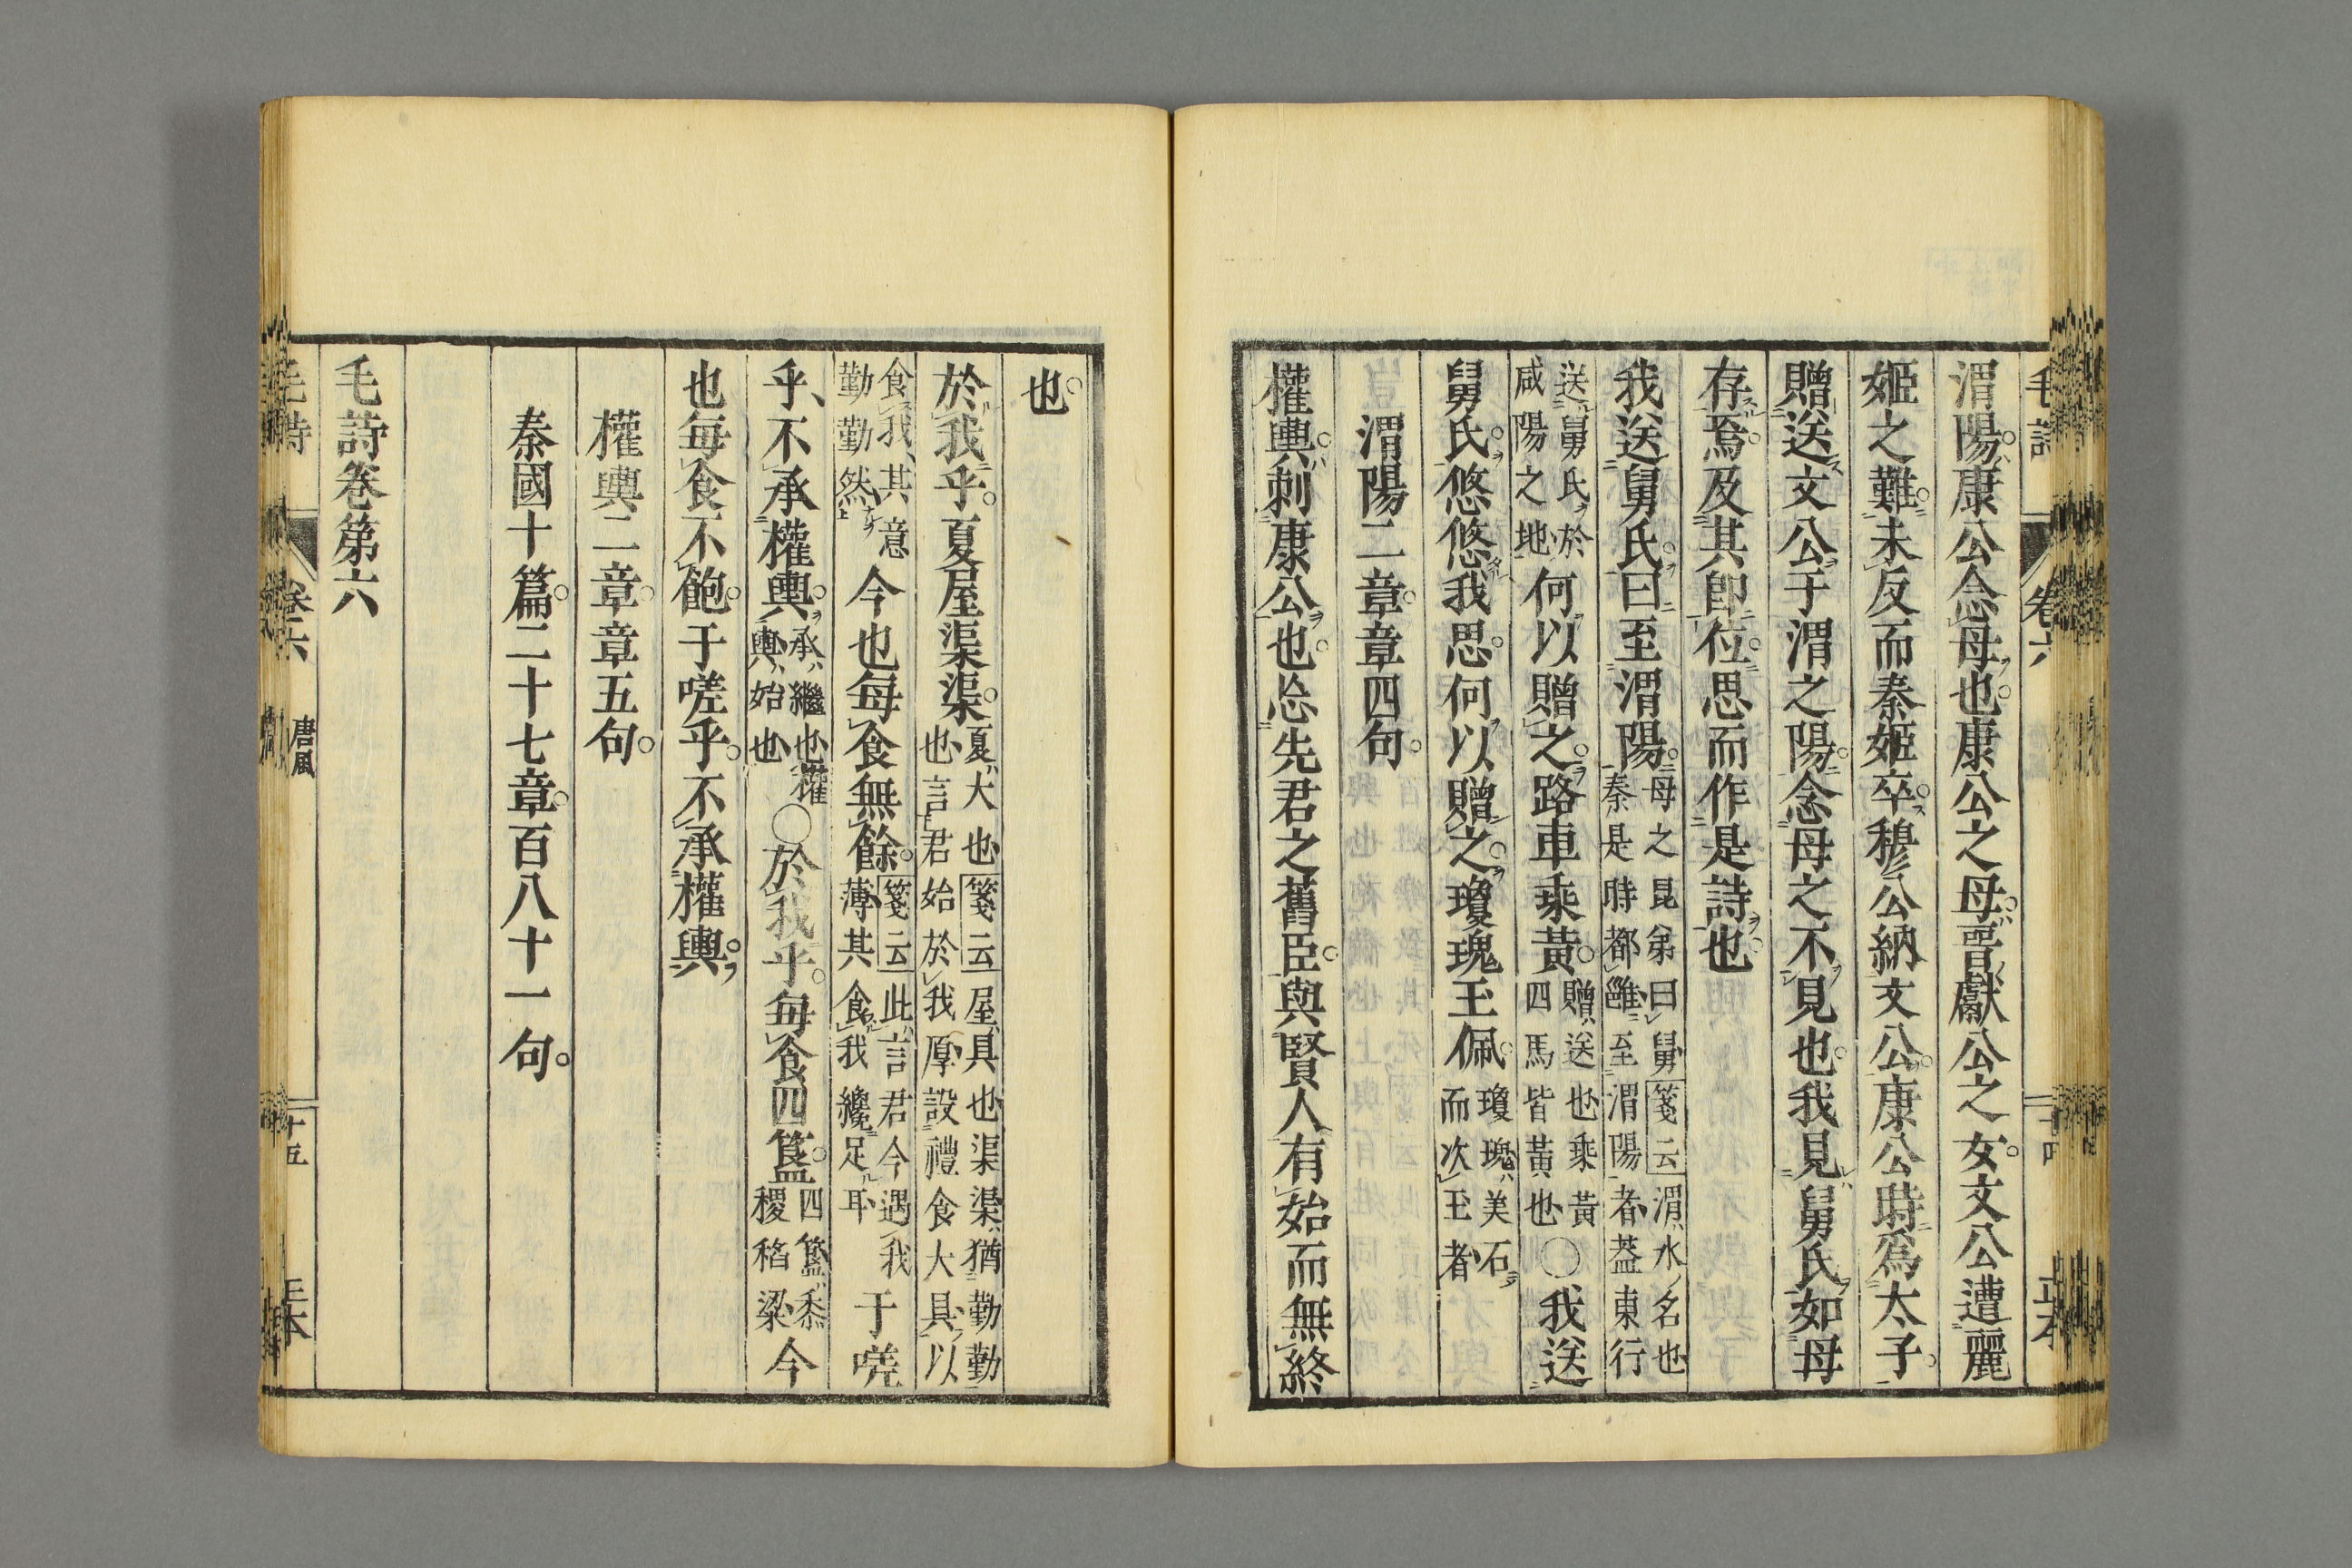 渭陽康公念母也康公之母晉獻公之女文公遭麗
姬之難未反而秦姬卒穆公納文公康公時爲太子
贈送文公于渭之陽念母之不見也我見舅氏如母
存焉及其即位思而作是詩也
我送舅氏曰至渭陽母之昆弟曰舅箋云渭水名也秦是時都雝至渭陽者葢東行
送舅氏於咸陽之地何以贈之路車乗黃贈送也乗黃四馬皆黃也〇我送
舅氏悠悠我思何以贈之瓊瑰玉佩瓊瑰美石而次玉者
渭陽二章章四句
權輿刺康公也忘先君之舊臣與賢人有始而無終
也
於我乎夏屋渠渠夏大也箋云屋具也渠渠猶勤勤也言君始於我厚設禮食大具以
食我其意勤勤然今也每食無餘箋云此言君今遇我薄其食我纔足耳于嗟
乎不承權輿承繼也權輿始也〇於我乎每食四簋四簋黍稷稻粱今
也每食不飽于嗟乎不承權輿
權輿二章章五句
秦國十篇二十七章百八十一句
毛詩卷第六
毛詩
卷六
唐風
十五